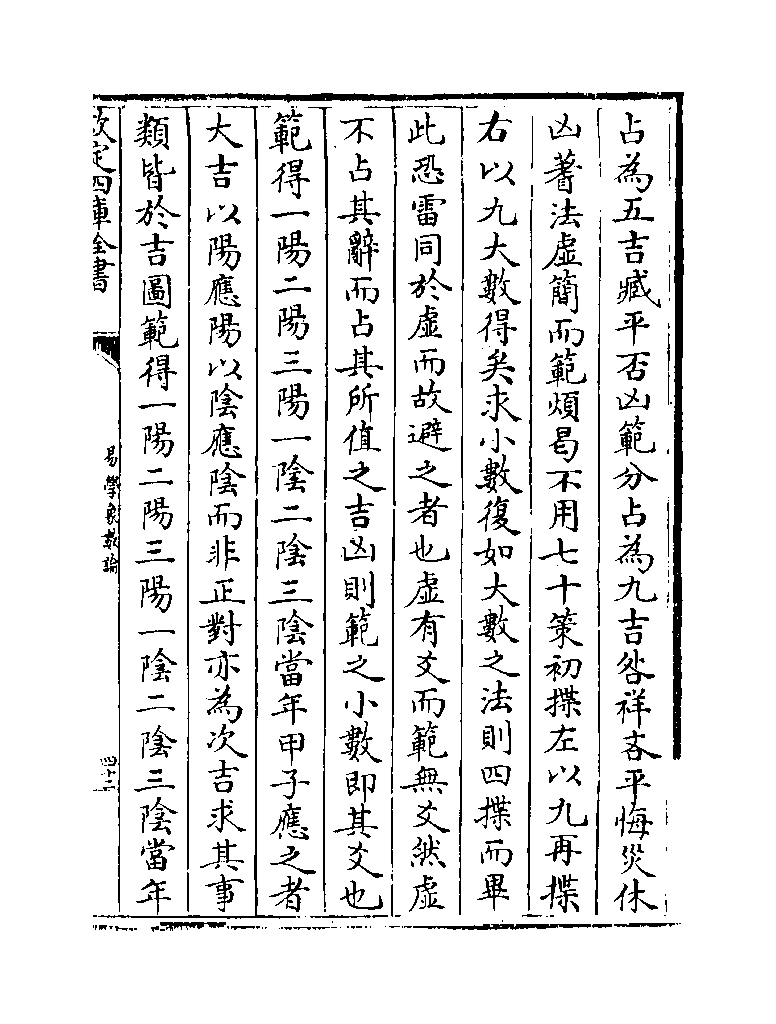 占為五吉臧平否凶範分占為九吉咎祥吝平悔災休
凶蓍法虛簡而範煩曷不用七十策初揲左以九再揲
右以九大數得矣求小數復如大數之法則四揲而畢
此恐雷同於虛而故避之者也虛有爻而範無爻然虛
不占其辭而占其所值之吉凶則範之小數即其爻也
範得一陽二陽三陽一陰二陰三陰當年甲子應之者
大吉以陽應陽以陰應陰而非正對亦為次吉求其事
類皆於吉圖範得一陽二陽三陽一陰二陰三陰當年
欽定四庫全書
易學象數論
四十二